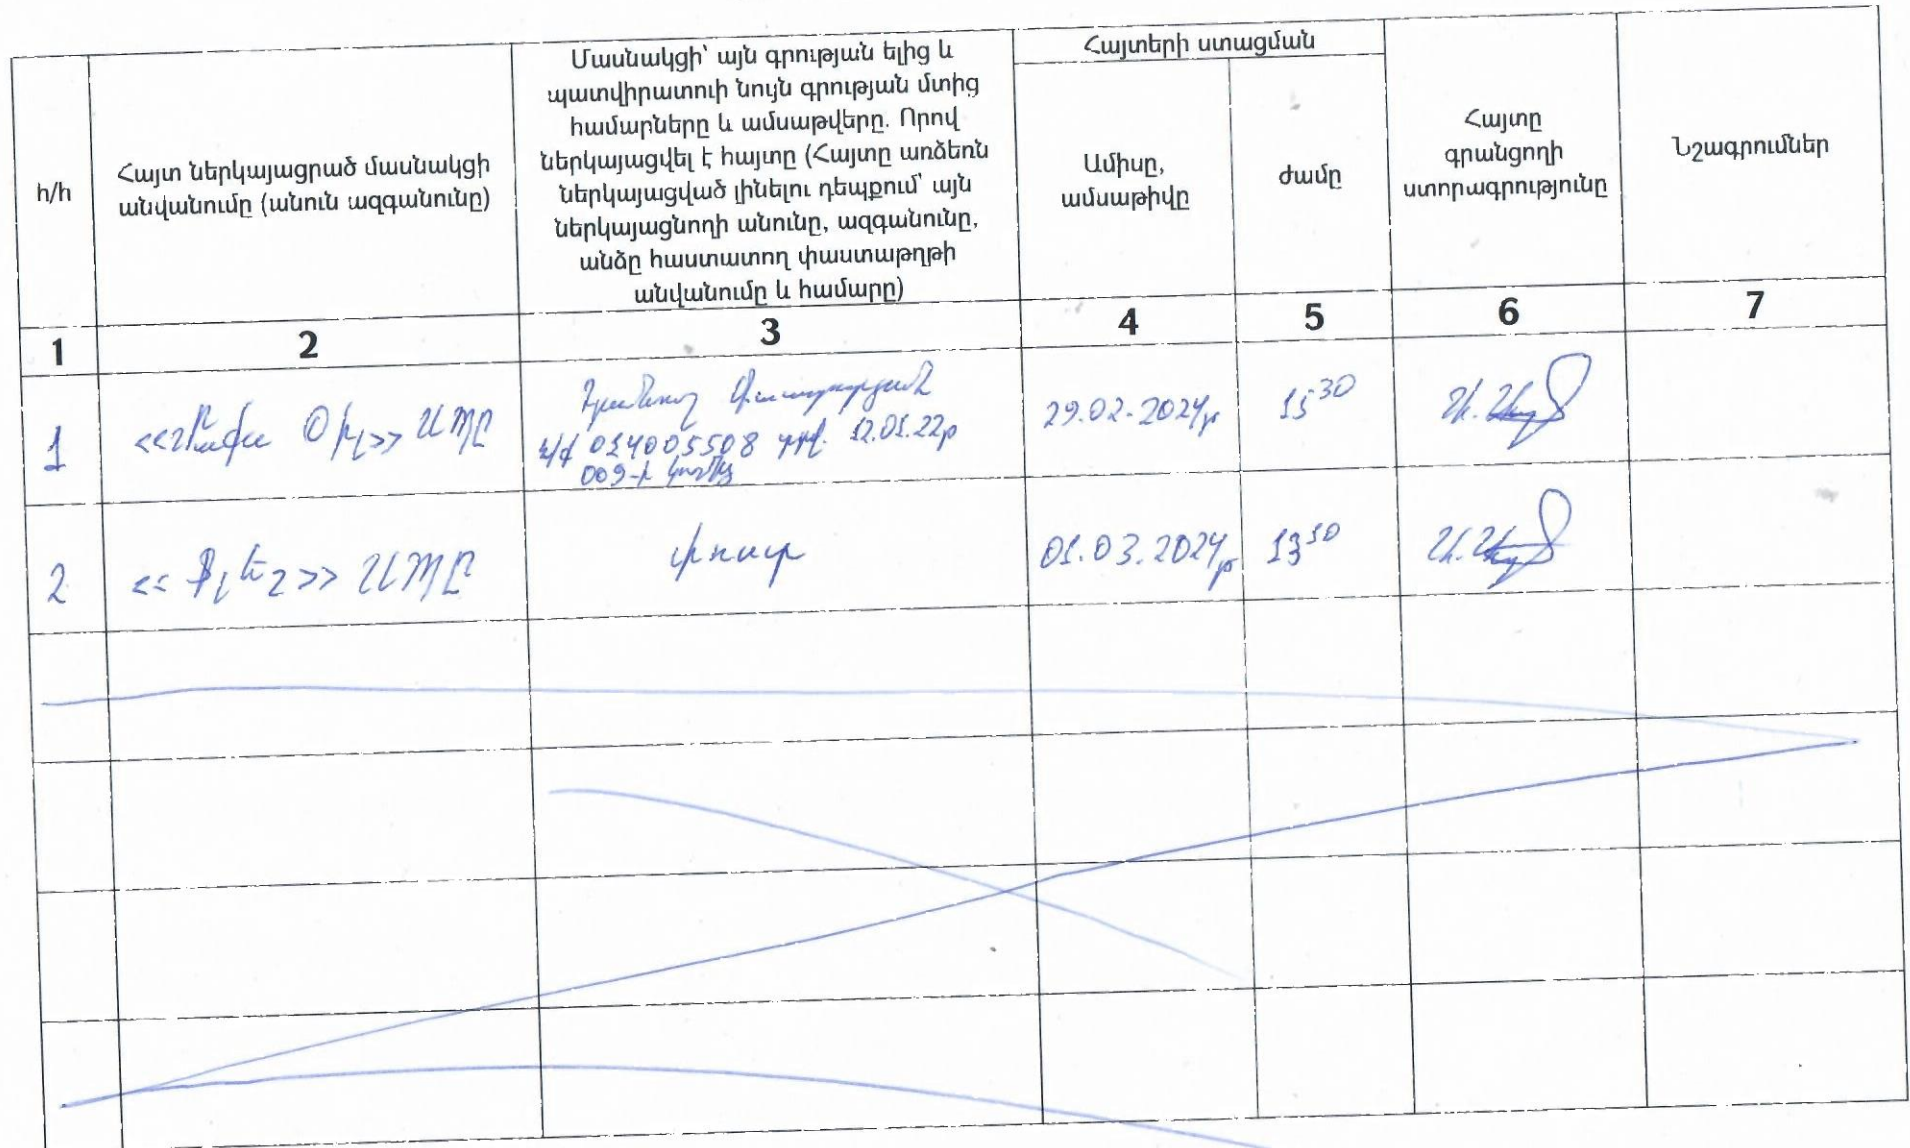 հ/հ
Հայտ ներկայացրած մասնակցի
անվանումը (անուն ազգանունը)
Մասնակցի՝ այն գրության ելից և
պատվիրատուի նույն գրության մտից
համարները և ամսաթվերը. Որով
ներկայացվել է հայտը (Հայտը առձեռն
ներկայացված լինելու դեպքում՝ այն
ներկայացնողի անունը, ազգանունը,
անձը հաստատող փաստաթղթի
անվանումը և համարը)
Հայտերի ստացման
Ամիսը,
ամսաթիվը
ժամը
Հայտը
գրանցողի
ստորագրությունը
Նշագրումներ
1
2
3
4
5
6
7
1
Օիլ>> ՍՊԸ
014005508 12.01.22թ
009-ի կողմից
29.02.2024թ
15 30
2
<<Ֆլեշ>> ՍՊԸ
փոստ
01.03.2024թ
13 10